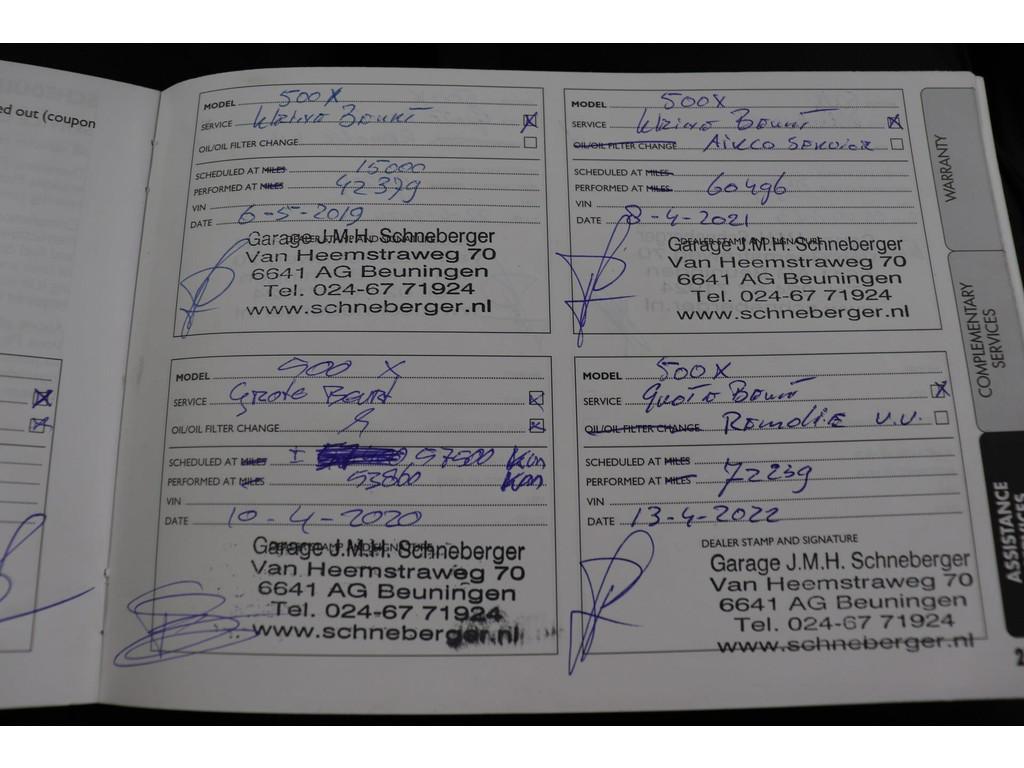 ed out (coupon
MODEL 500X
SERVICE Kleine Beurt
OIL/OIL FILTER CHANGE
SCHEDULED AT MILES 15000
PERFORMED AT MILES 42379
VIN
DATE 6-5-2019
DEALER STAMP AND SIGNATURE
Garage J.M.H. Schneberger
Van Heemstraweg 70
6641 AG Beuningen
Tel. 024-67 71924
www.schneberger.nl
MODEL 500X
SERVICE Kleine Beurt
OIL/OIL FILTER CHANGE Airco Service
SCHEDULED AT MILES
PERFORMED AT MILES 60496
VIN
DATE 8-4-2021
DEALER STAMP AND SIGNATURE
Garage J.M.H. Schneberger
Van Heemstraweg 70
6641 AG Beuningen
Tel. 024-67 71924
www.schneberger.nl
MODEL 500 X
SERVICE Grote Beurt
OIL/OIL FILTER CHANGE
SCHEDULED AT MILES ± 57500 Km
PERFORMED AT MILES 53860 Km
VIN
DATE 10-4-2020
Garage J.M.H. Schneberger
Van Heemstraweg 70
6641 AG Beuningen
Tel. 024-67 71924
www.schneberger.nl
MODEL 500X
SERVICE Grote Beurt
OIL/OIL FILTER CHANGE Remolie V.V.
SCHEDULED AT MILES
PERFORMED AT MILES 72239
VIN
DATE 13-4-2022
DEALER STAMP AND SIGNATURE
Garage J.M.H. Schneberger
Van Heemstraweg 70
6641 AG Beuningen
Tel. 024-67 71924
www.schneberger.nl
WARRANTY
COMPLEMENTARY
SERVICES
ASSISTANCE